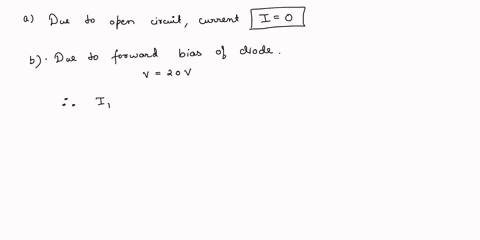 a) Due to open circuit, current I = 0
b). Due to forward bias of diode.
V = 20V
∴ I,